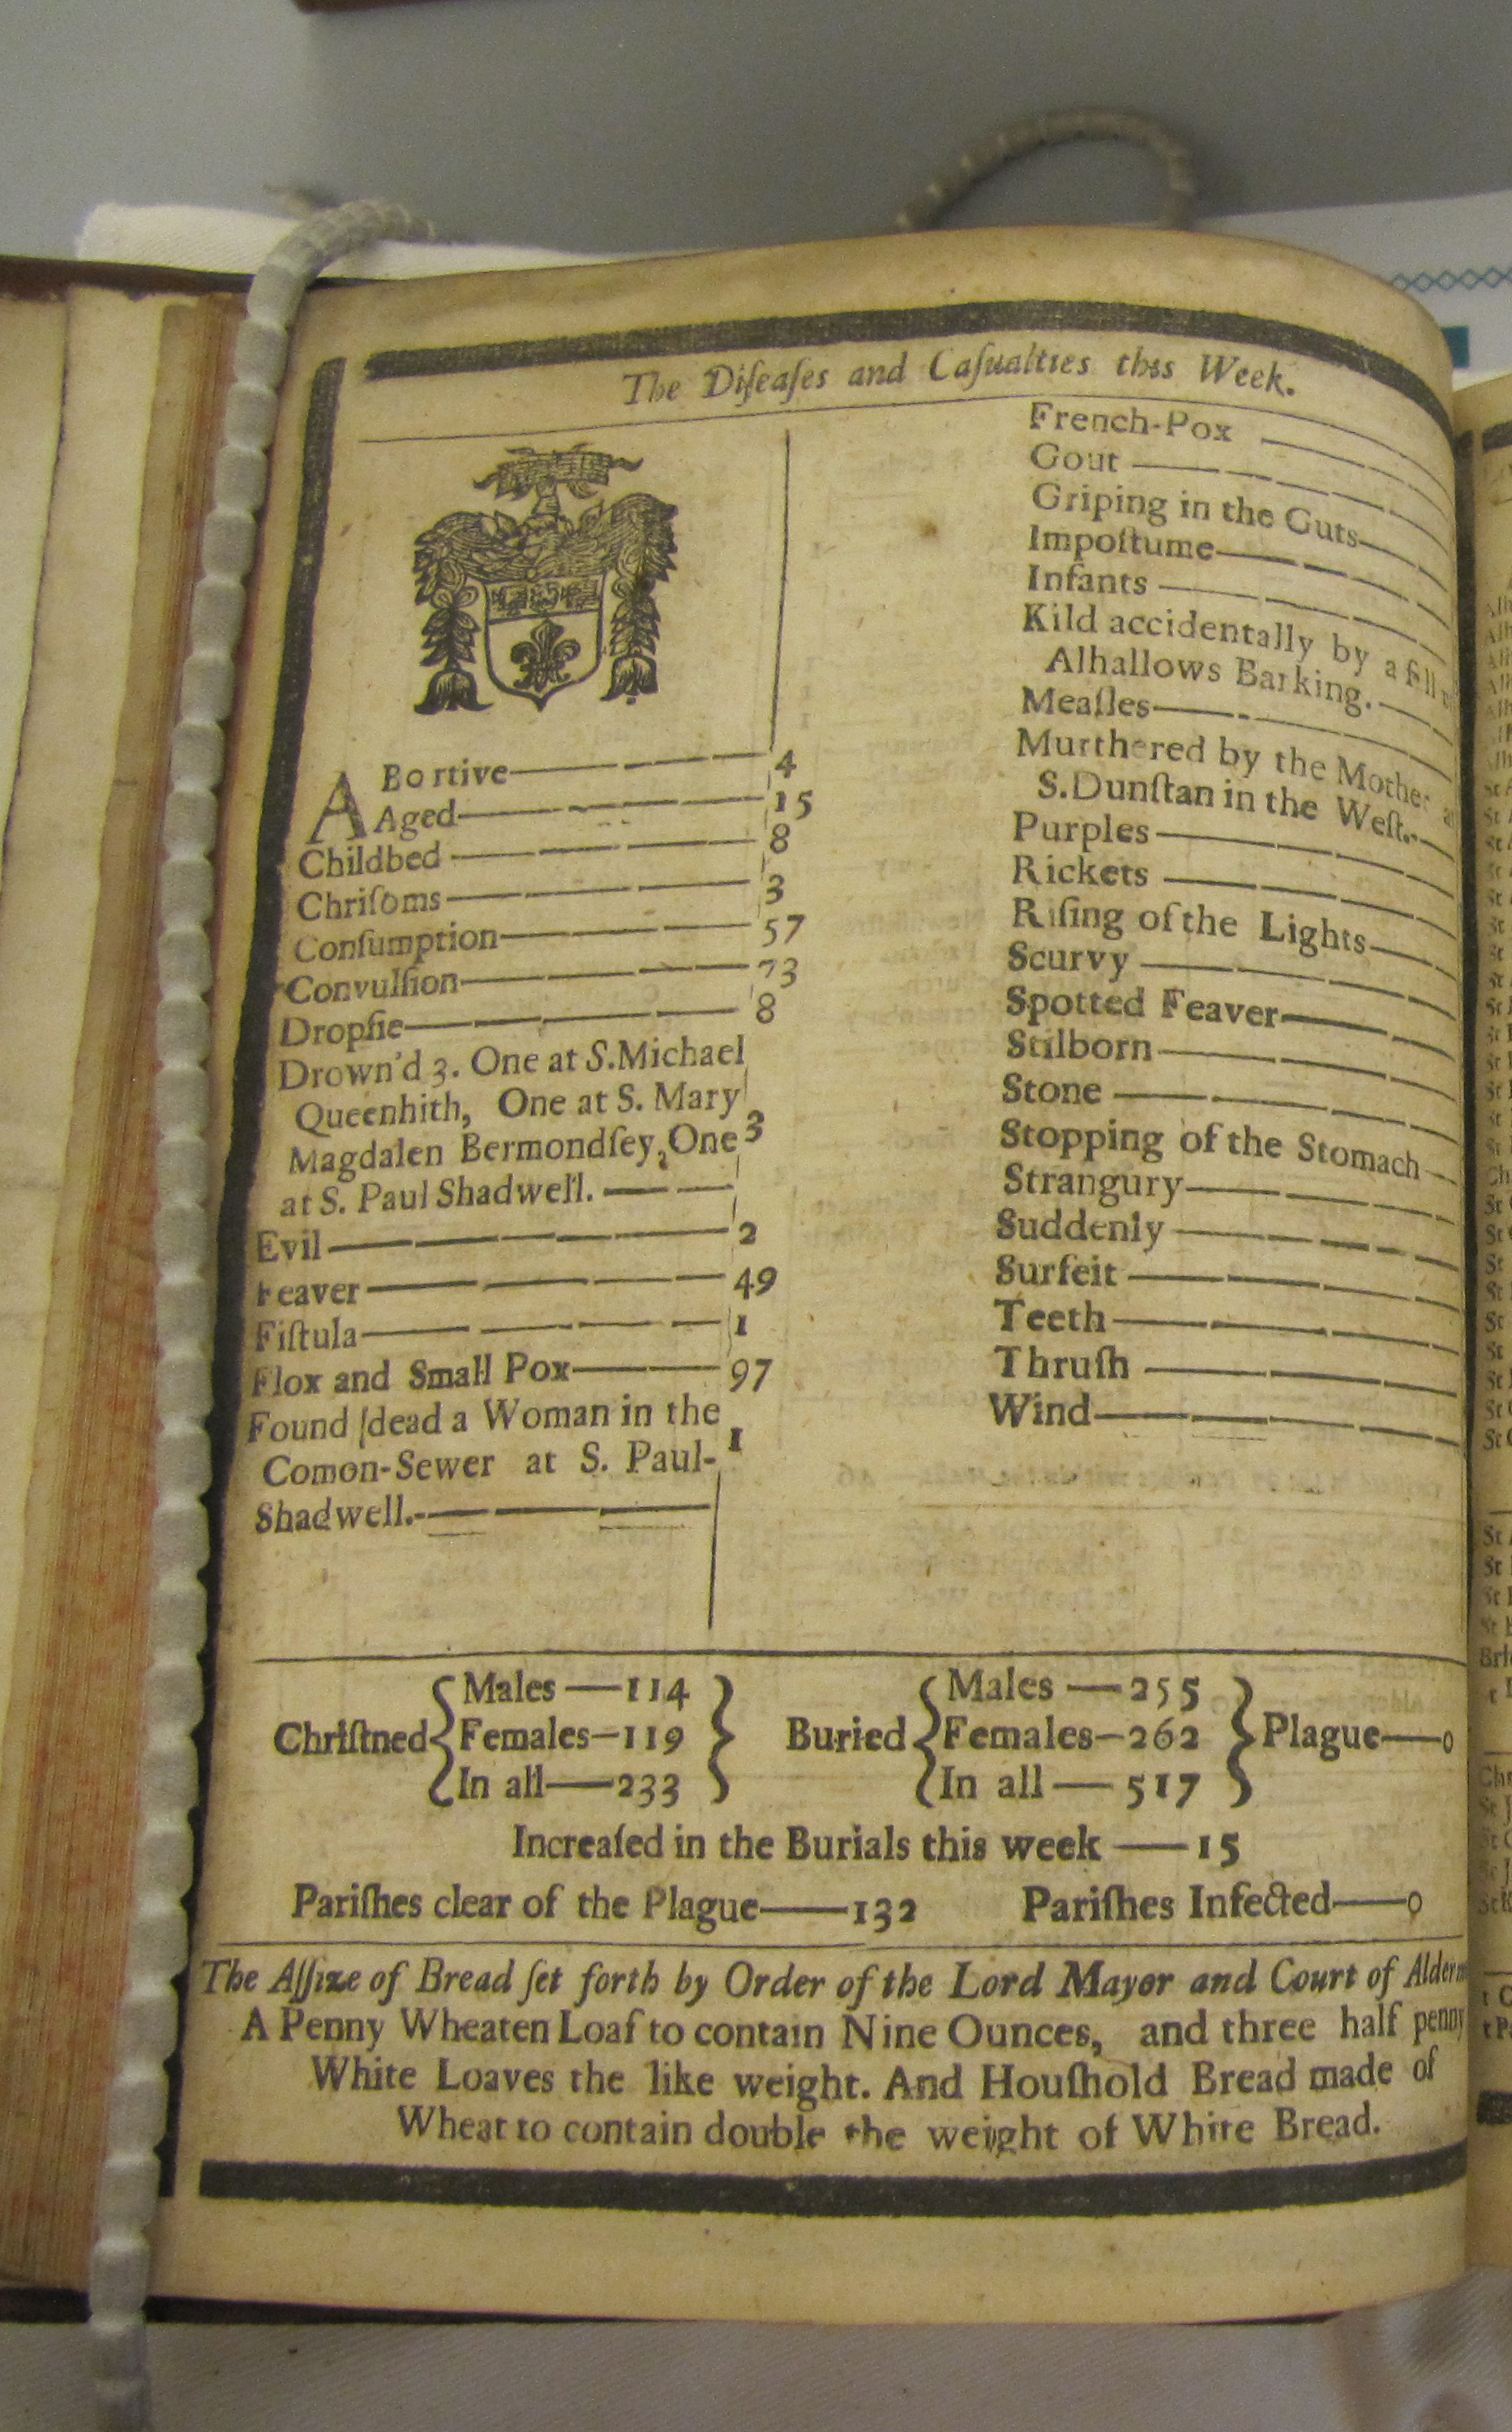 The Diſeaſes and Caſualties this Week.
ABortive 4
Aged 15
Childbed 8
Chriſoms 3
Conſumption 57
Convulſion 73
Dropſie 8
Drown'd 3. One at S.Michael
Queenhith, One at S. Mary
Magdalen Bermondſey, One 3
at S. Paul Shadwell.
Evil 2
Feaver 49
Fiſtula 1
Flox and Small Pox 97
Found dead a Woman in the
Comon-Sewer at S. Paul- 1
Shadwell.
French-Pox
Gout
Griping in the Guts
Impoſtume
Infants
Kild accidentally by a
Alhallows Barking.
Meaſles
Murthered by the Mother
S.Dunſtan in the Weſt.
Purples
Rickets
Riſing of the Lights
Scurvy
Spotted Feaver
Stilborn
Stone
Stopping of the Stomach
Strangury
Suddenly
Surfeit
Teeth
Thruſh
Wind
Chriſtned Males—114 Females—119 In all—233
Buried Males—255 Females—262 In all—517
Plague—0
Increaſed in the Burials this week—15
Pariſhes clear of the Plague—132 Pariſhes Infected—0
The Aſſize of Bread ſet forth by Order of the Lord Mayor and Court of
A Penny Wheaten Loaf to contain Nine Ounces, and three half penny
White Loaves the like weight. And Houſhold Bread made of
Wheat to contain double the weight of White Bread.